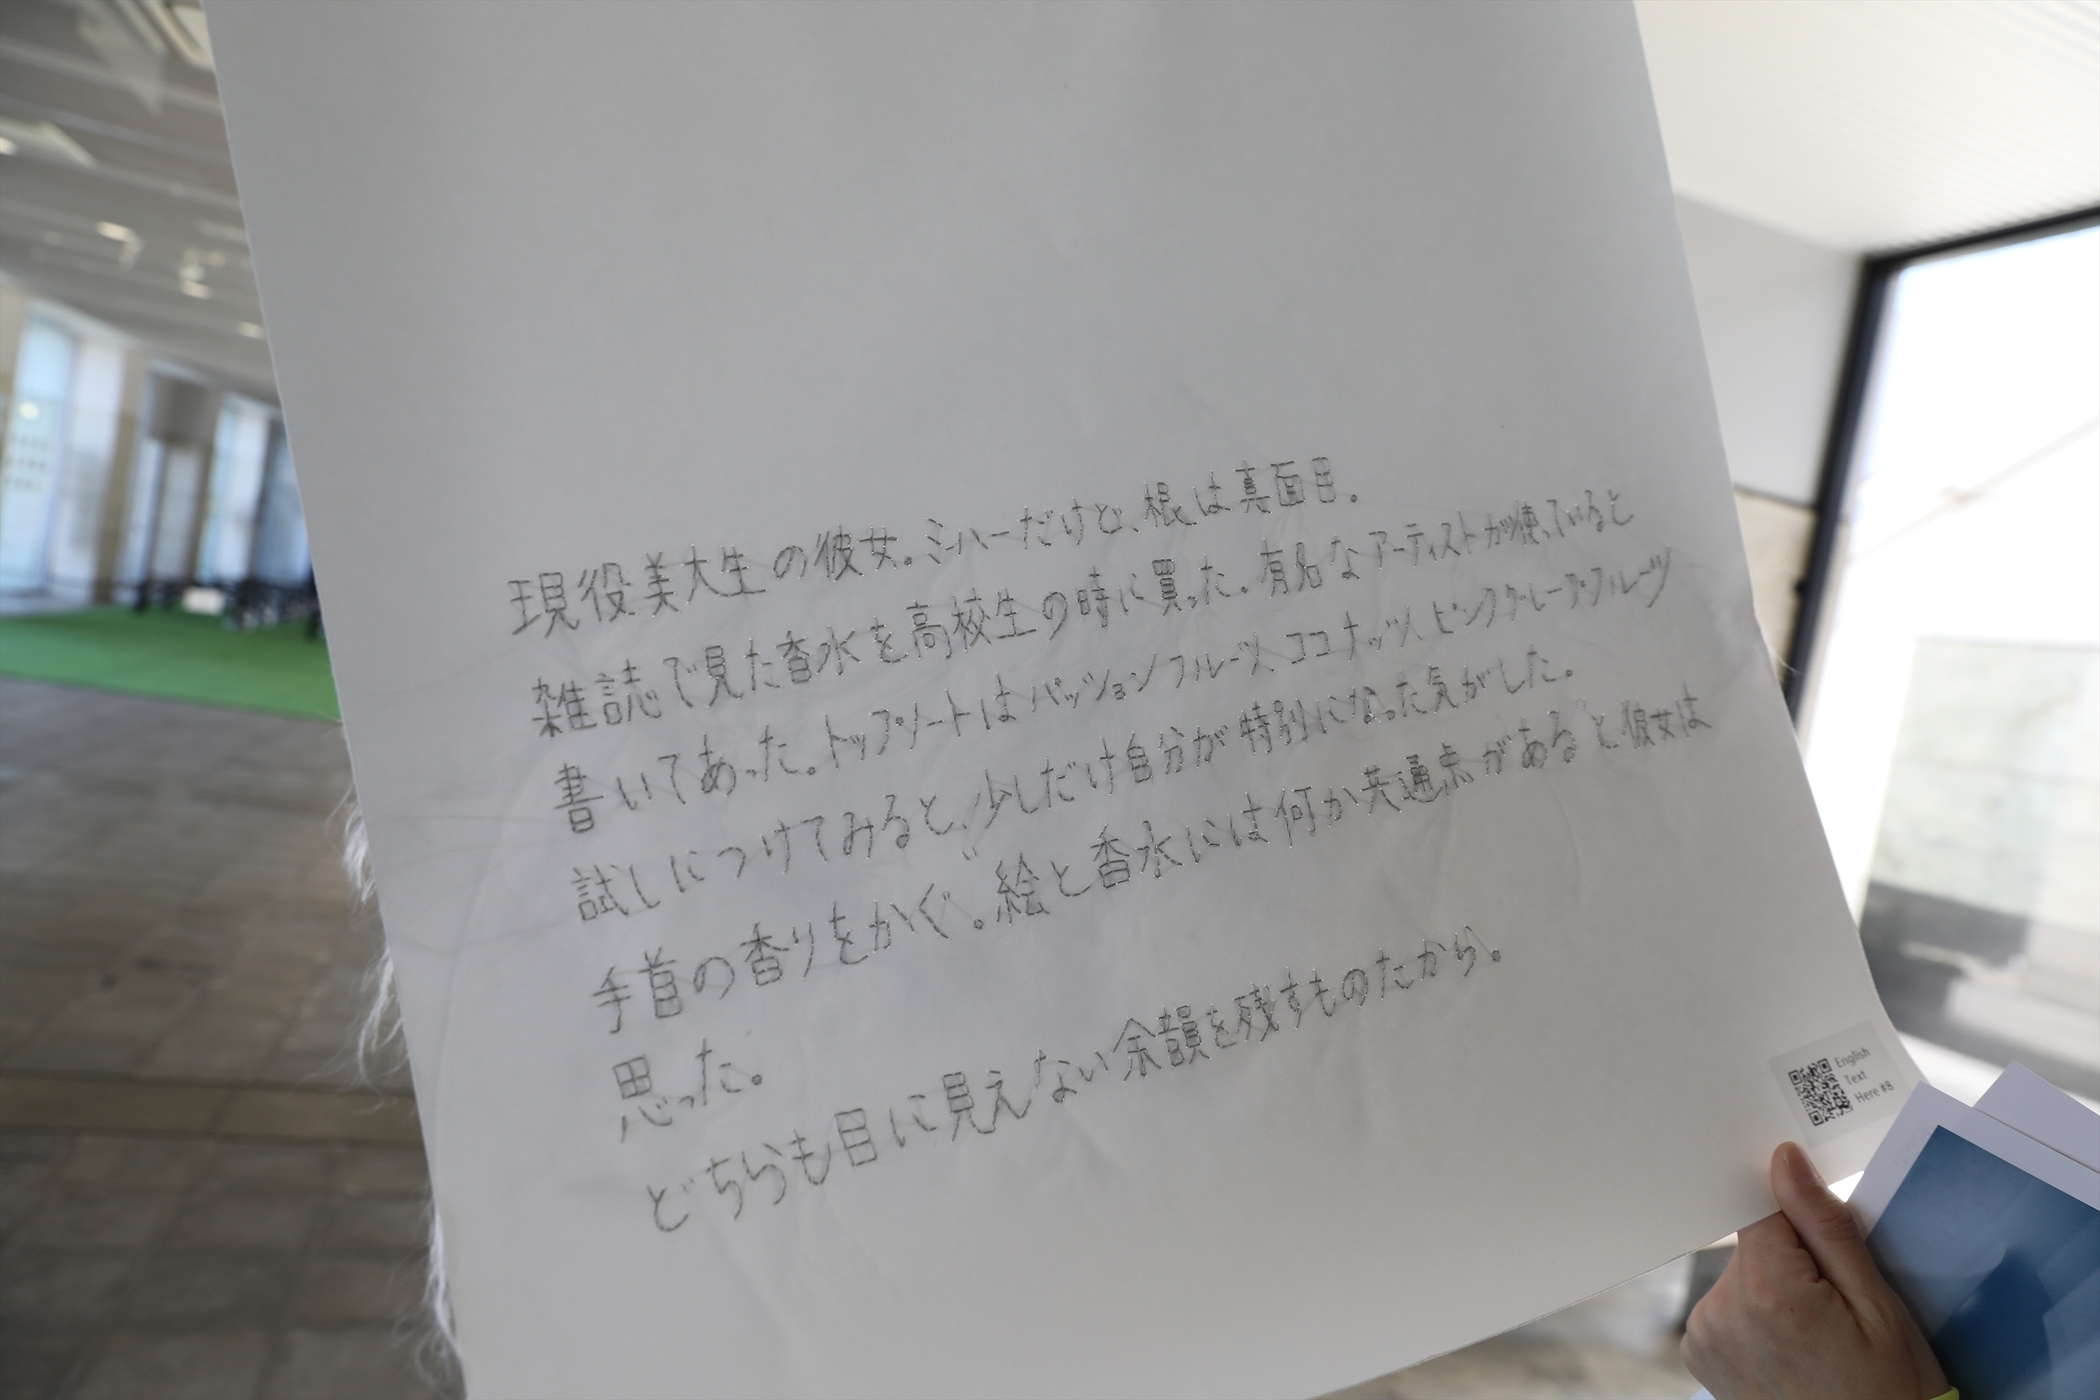 現役美大生の彼女。ミーハーだけど、根は真面目。
雑誌で見た香水を高校生の時に買った。有名なアーティストが使っていると
書いてあった。トップノートはパッションフルーツ、ココナッツ、ピンクグレープフルーツ
試しにつけてみると、少しだけ自分が特別になった気がした。
手首の香りをかぐ。絵と香水には何か共通点がある゛と彼女は
思った。
どちらも目に見えない余韻を残すものだから。
English
Text
Here #8